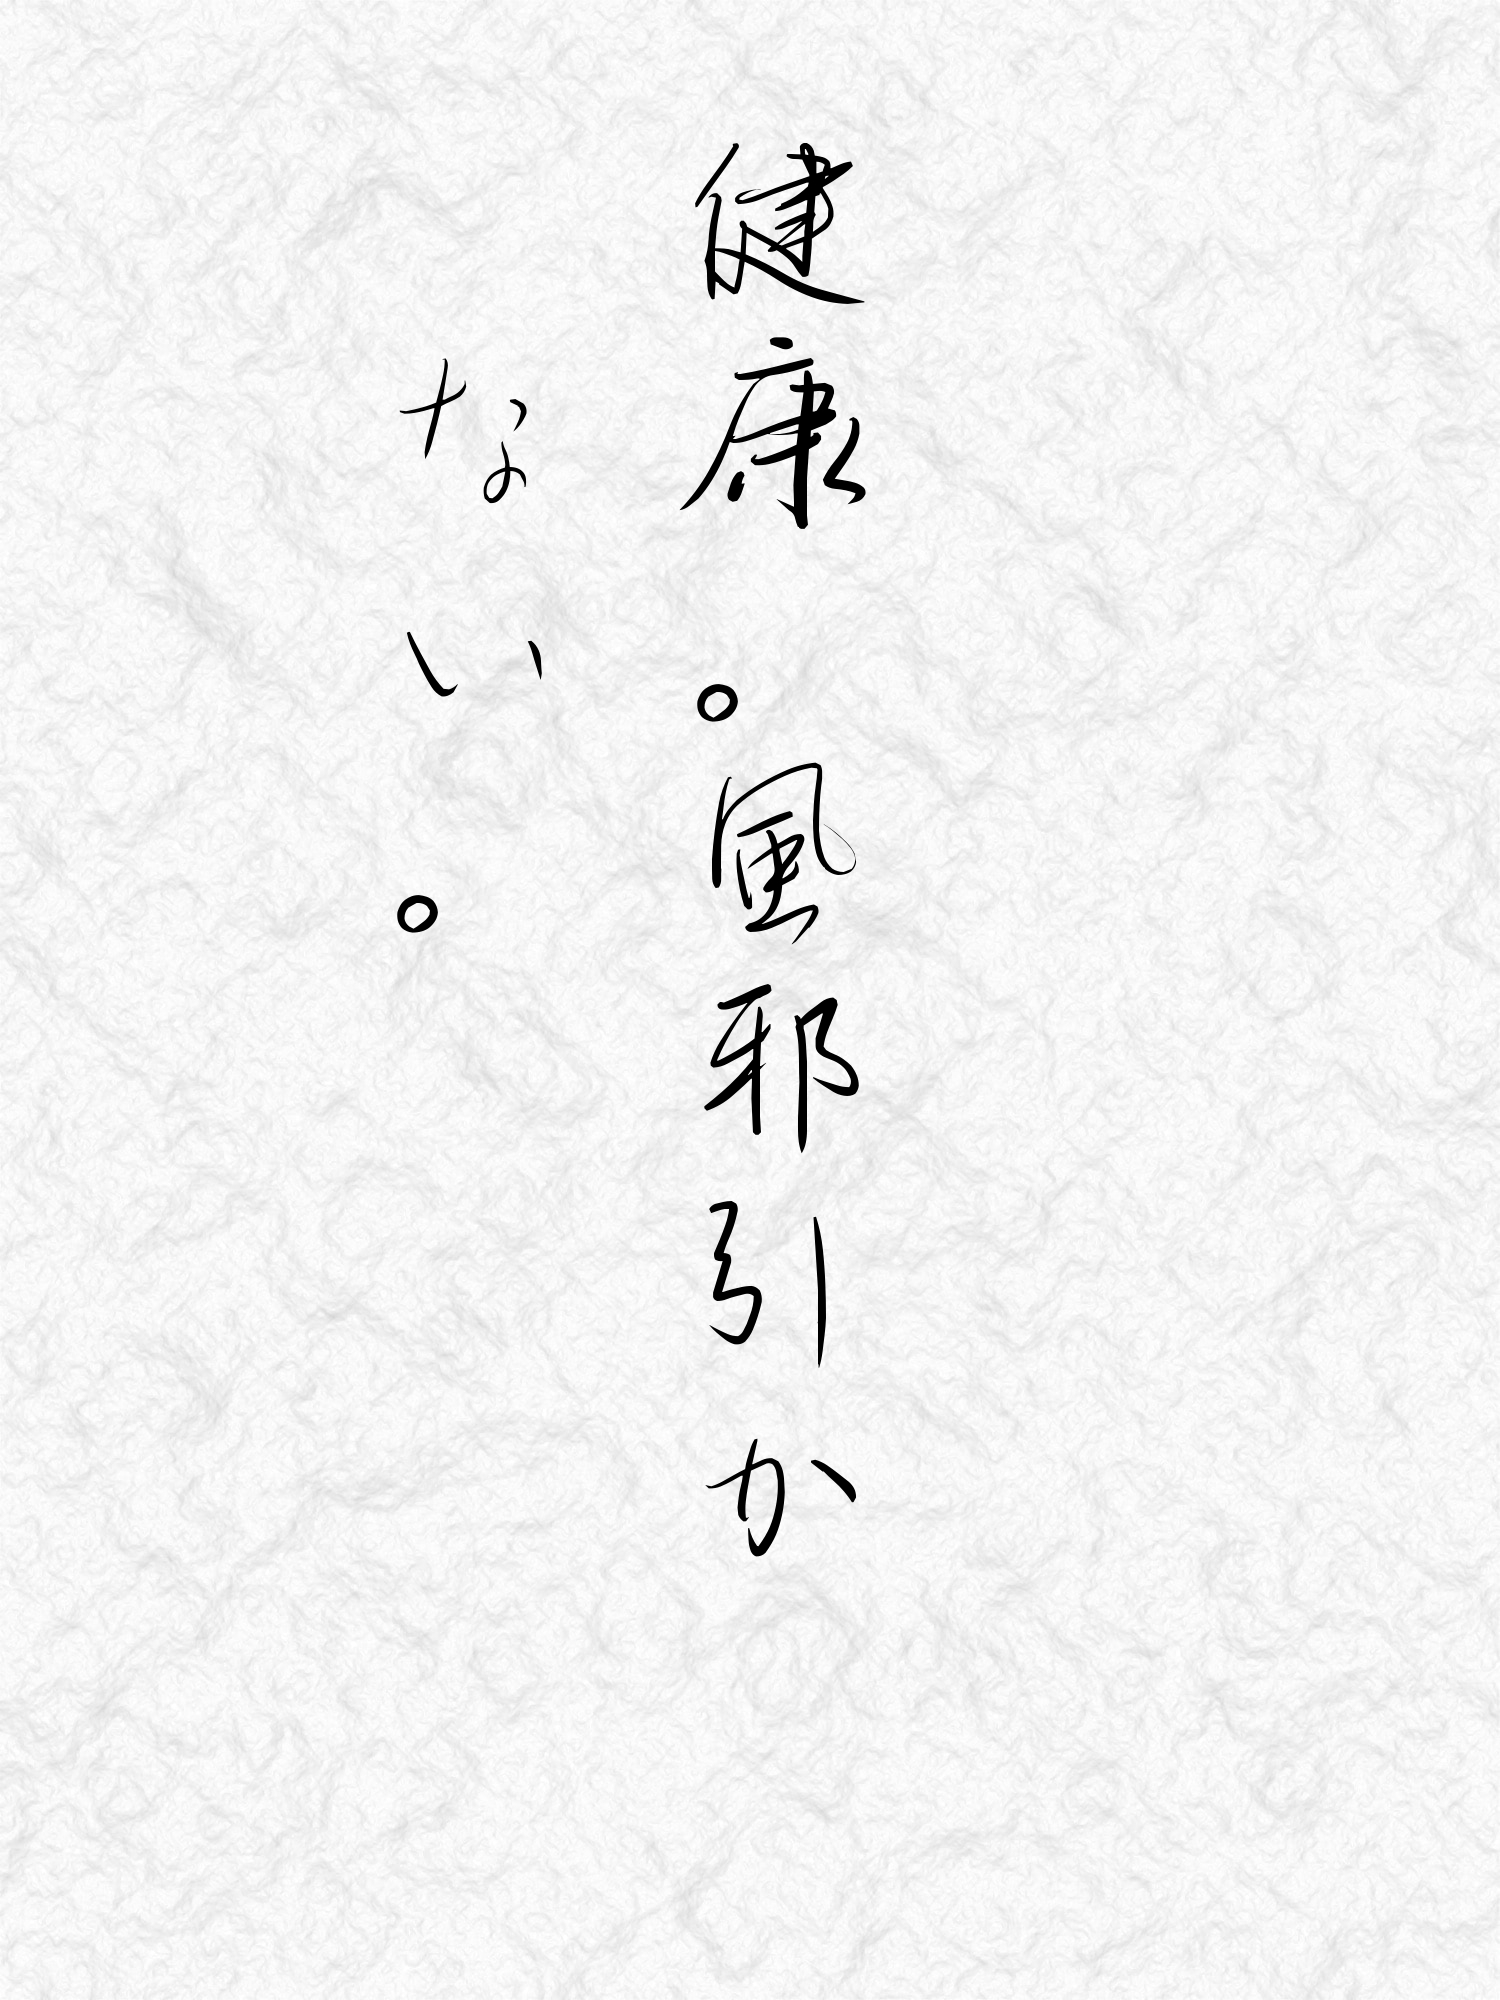 健康。風邪引か
ない。